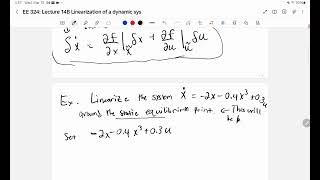 EE 324: Lecture 14B Linearization of a dynamic sys
δẋ = ∂f/∂x | δx + ∂f/∂u | δu
Ex. Linearize the system ẋ = -2x - 0.4x³ + 0.3u
around the static equilibrium point. ← This will
be
Set -2x - 0.4x³ + 0.3u